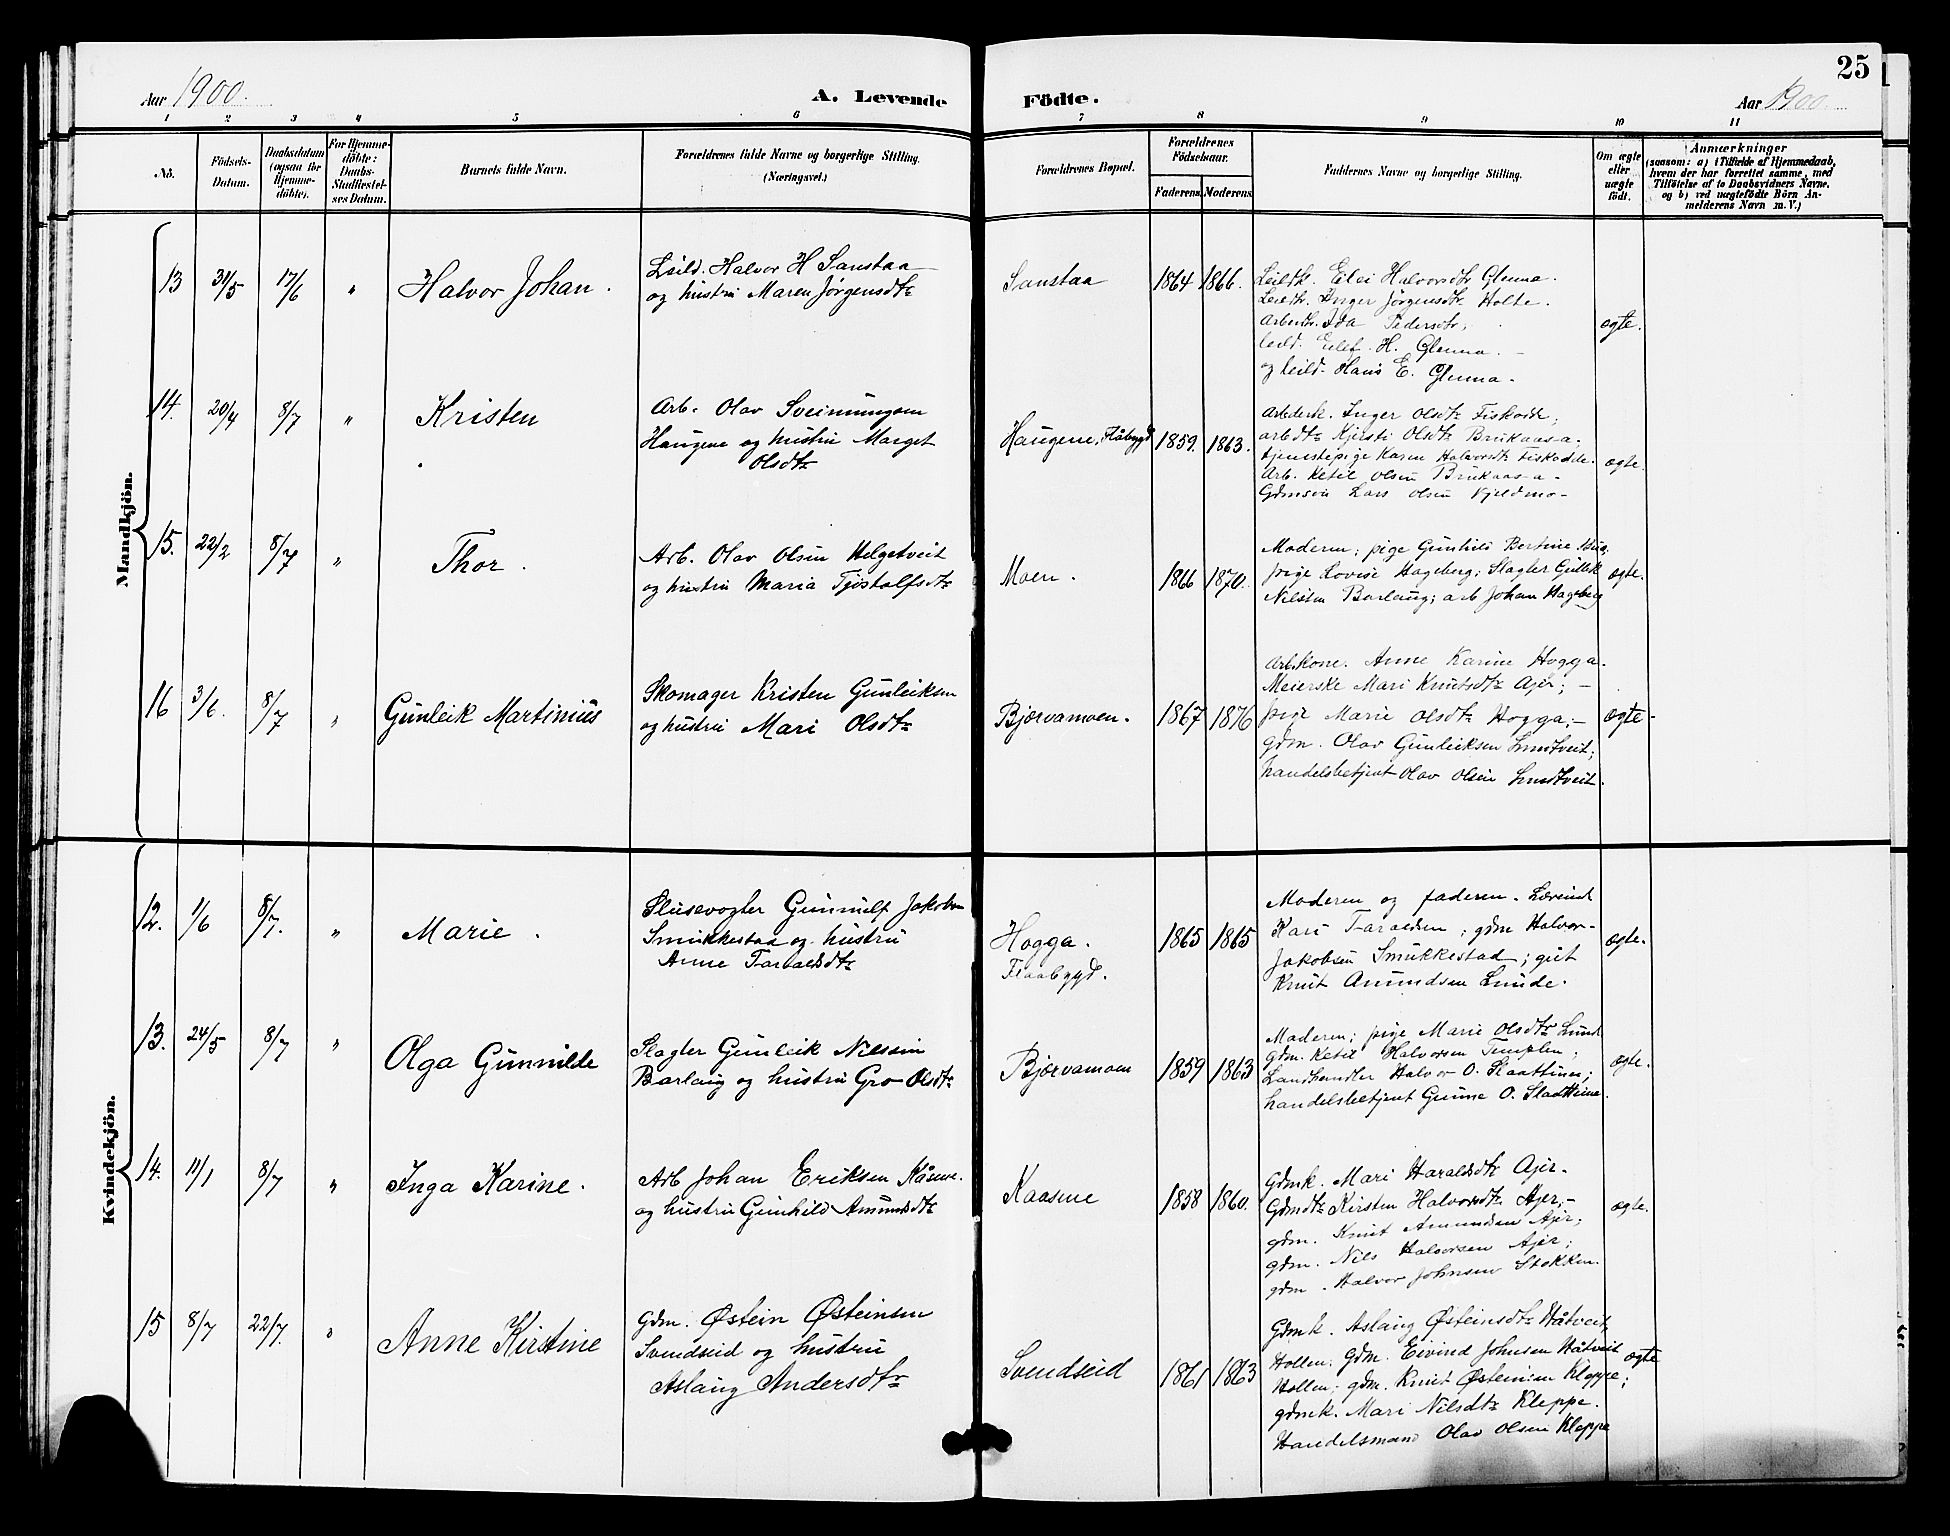 25
Aar 1900.
A. Levende Födte.
Aar 1900.
1 2 3 4 5 6 7 8 9 10 11
No.
Födsels-Datum.
Daabsdatum (ogsaa for Hjemme-döbte).
For Hjemme-döbte: Daabs-Stadfæstel-ses Datum.
Barnets fulde Navn.
Forældrenes fulde Navne og borgerlige Stilling. (Næringsvei.)
Forældrenes Bopæl.
Forældrenes Födselsaar.
Faderens. Moderens.
Faddernes Navne og borgerlige Stilling.
Om ægte eller uægte födt.
Anmærkninger
(saasom: a) i Tilfælde af Hjemmedaab,
hvem der har forrettet samme, med
Tilföielse af to Daabsvidners Navne,
og b) ved uægtefödte Börn An-
melderens Navn m. V.)
Mandkjön.
13 31/5 17/6 " Halvor Johan.
Leild. Halvor H Sanstaa
og hustru Maren Jörgensdtr
Sanstaa 1864 1866.
Leildk. Eilei Halvorsdtr Glenna.
Leildk. Inger Jörgensdtr Holte.
Arbeidk. Ida Pedersdtr;
leild. Eilef. H. Glenna.
og leild. Hans E. Glenna.
ægte.
14. 20/4 8/7 " Kristen
Arb. Olav Sveinungsen
Haugene og hustru Marget
Olsdtr
Haugene, Flåbygd 1859. 1863.
Arbeidsk. Inger Olsdtr Fiskodde;
arbdtr Kjersti Olsdtr Brukaas-a;
tjenestepige Karen Halvorsdtr Fiskodde.
Arb. Ketil Olsen Brukaas-a.
Gdmsön Lars Olsen Kjeldmo-
ægte.
15. 22/2 8/7 " Thor.
Arb. Olav Olsen Helgetveit
og hustru Maria Tjostolfsdtr
Moen. 1866 1870.
Moderen; pige Gunhild Bertine
pige Lovise Hageberg; Slagter Gullek
Nilssen Barlaug; arb Johan Hageberg
ægte.
16 3/6. 8/7 " Gunleik Martinius
Skomager Kristen Gunleiksen
og hustru Mari Olsdtr
Bjervamoen. 1867 1876
Arb.kone. Anne Karine Hogga.
Meierske Mari Knutsdtr Ajer;
pige Marie Olsdtr Hogga;
gdm. Olav Gunleiksen Lundtveit;
handelsbetjent Olav Olsen Lundtveit.
ægte
Kvindekjön.
12. 1/6 8/7. " Marie.
Slusevogter Gunnulf Jakobsen
Smukkestaa og hustru
Anne Taraldsdtr
Hogga.
Flaabygd.
1865 1865
Moderen og faderen.
Kari Taraldsen; gdm Halvor
Jakobsen Smukkestad; gut
Knut Amundsen Lunde.
ægte.
13. 24/5 8/7 " Olga Gunnilde
Slagter Gunleik Nilssen
Barlaug og hustru Gro Olsdtr
Bjervamoen 1859 1863
Moderen; pige Marie Olsdtr Lund
gdm. Ketil Halvorsen Templen;
Landhandler Halvor O. Slaattene;
handelsbetjent Gunne O. Slaattene.
ægte.
14. 11/1 8/7 " Inga Karine.
Arb Johan Eriksen Kåsene.
og hustru Gunhild Amundsdtr
Kaasene 1858 1860.
Gdmk. Mari Haraldsdtr Ajer.
Gdmdtr Kirsten Halvorsdtr Ajer;
gdm. Knut Amundsen Ajer;
gdm. Nils Halvorsen Ajer;
gdm. Halvor Johnsen Stokken.
ægte.
15 8/7 22/7. " Anne Kirstine
Gdm. Østein Østeinsen
Svendseid og hustru
Aslaug Andersdtr
Svendseid 1861 1863
Gdmk. Aslaug Østeinsdtr Håtveit,
Hollen; Gdm. Eivind Johnsen Håtveit
Hollen; gdm. Knut Østeinsen Kleppe;
gdmk. Mari Nilsdtr Kleppe.
Handelsmand Olav Olsen Kleppe
ægte